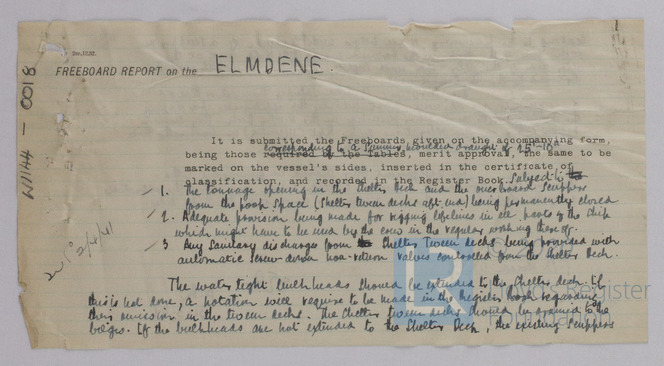 Dec.,17,32.
FREEBOARD REPORT on the ELMDENE.
W1144 - 0018
It is submitted the Freeboards given on the accompanying form,
corresponding to a summer moulded draught of 25'-10"
being those required by the Tables, merit approval, the same to be
marked on the vessel's sides, inserted in the certificate of
classification, and recorded in the Register Book. Subject to
1. The tonnage opening in the shelter deck and the overboard scuppers
from the poop space (Shelter tween decks aft. end) being permanently closed
2. Adequate provision being made for rigging lifelines in all parts of the ship
which might have to be used by the crew in the regular working thereof.
3 Any sanitary discharges from the Shelter Tween decks being provided with
automatic screw-down non-return valves controlled from the Shelter Deck.
2/4/41
The water tight bulkheads should be extended to the Shelter deck. If
this is not done, a notation will require to be made in the Register Book regarding
their omission in the tween decks. The Shelter tween decks should be drained to the
bilges. If the bulkheads are not extended to the Shelter Deck, the existing scuppers
Lloyd's Register
Foundation